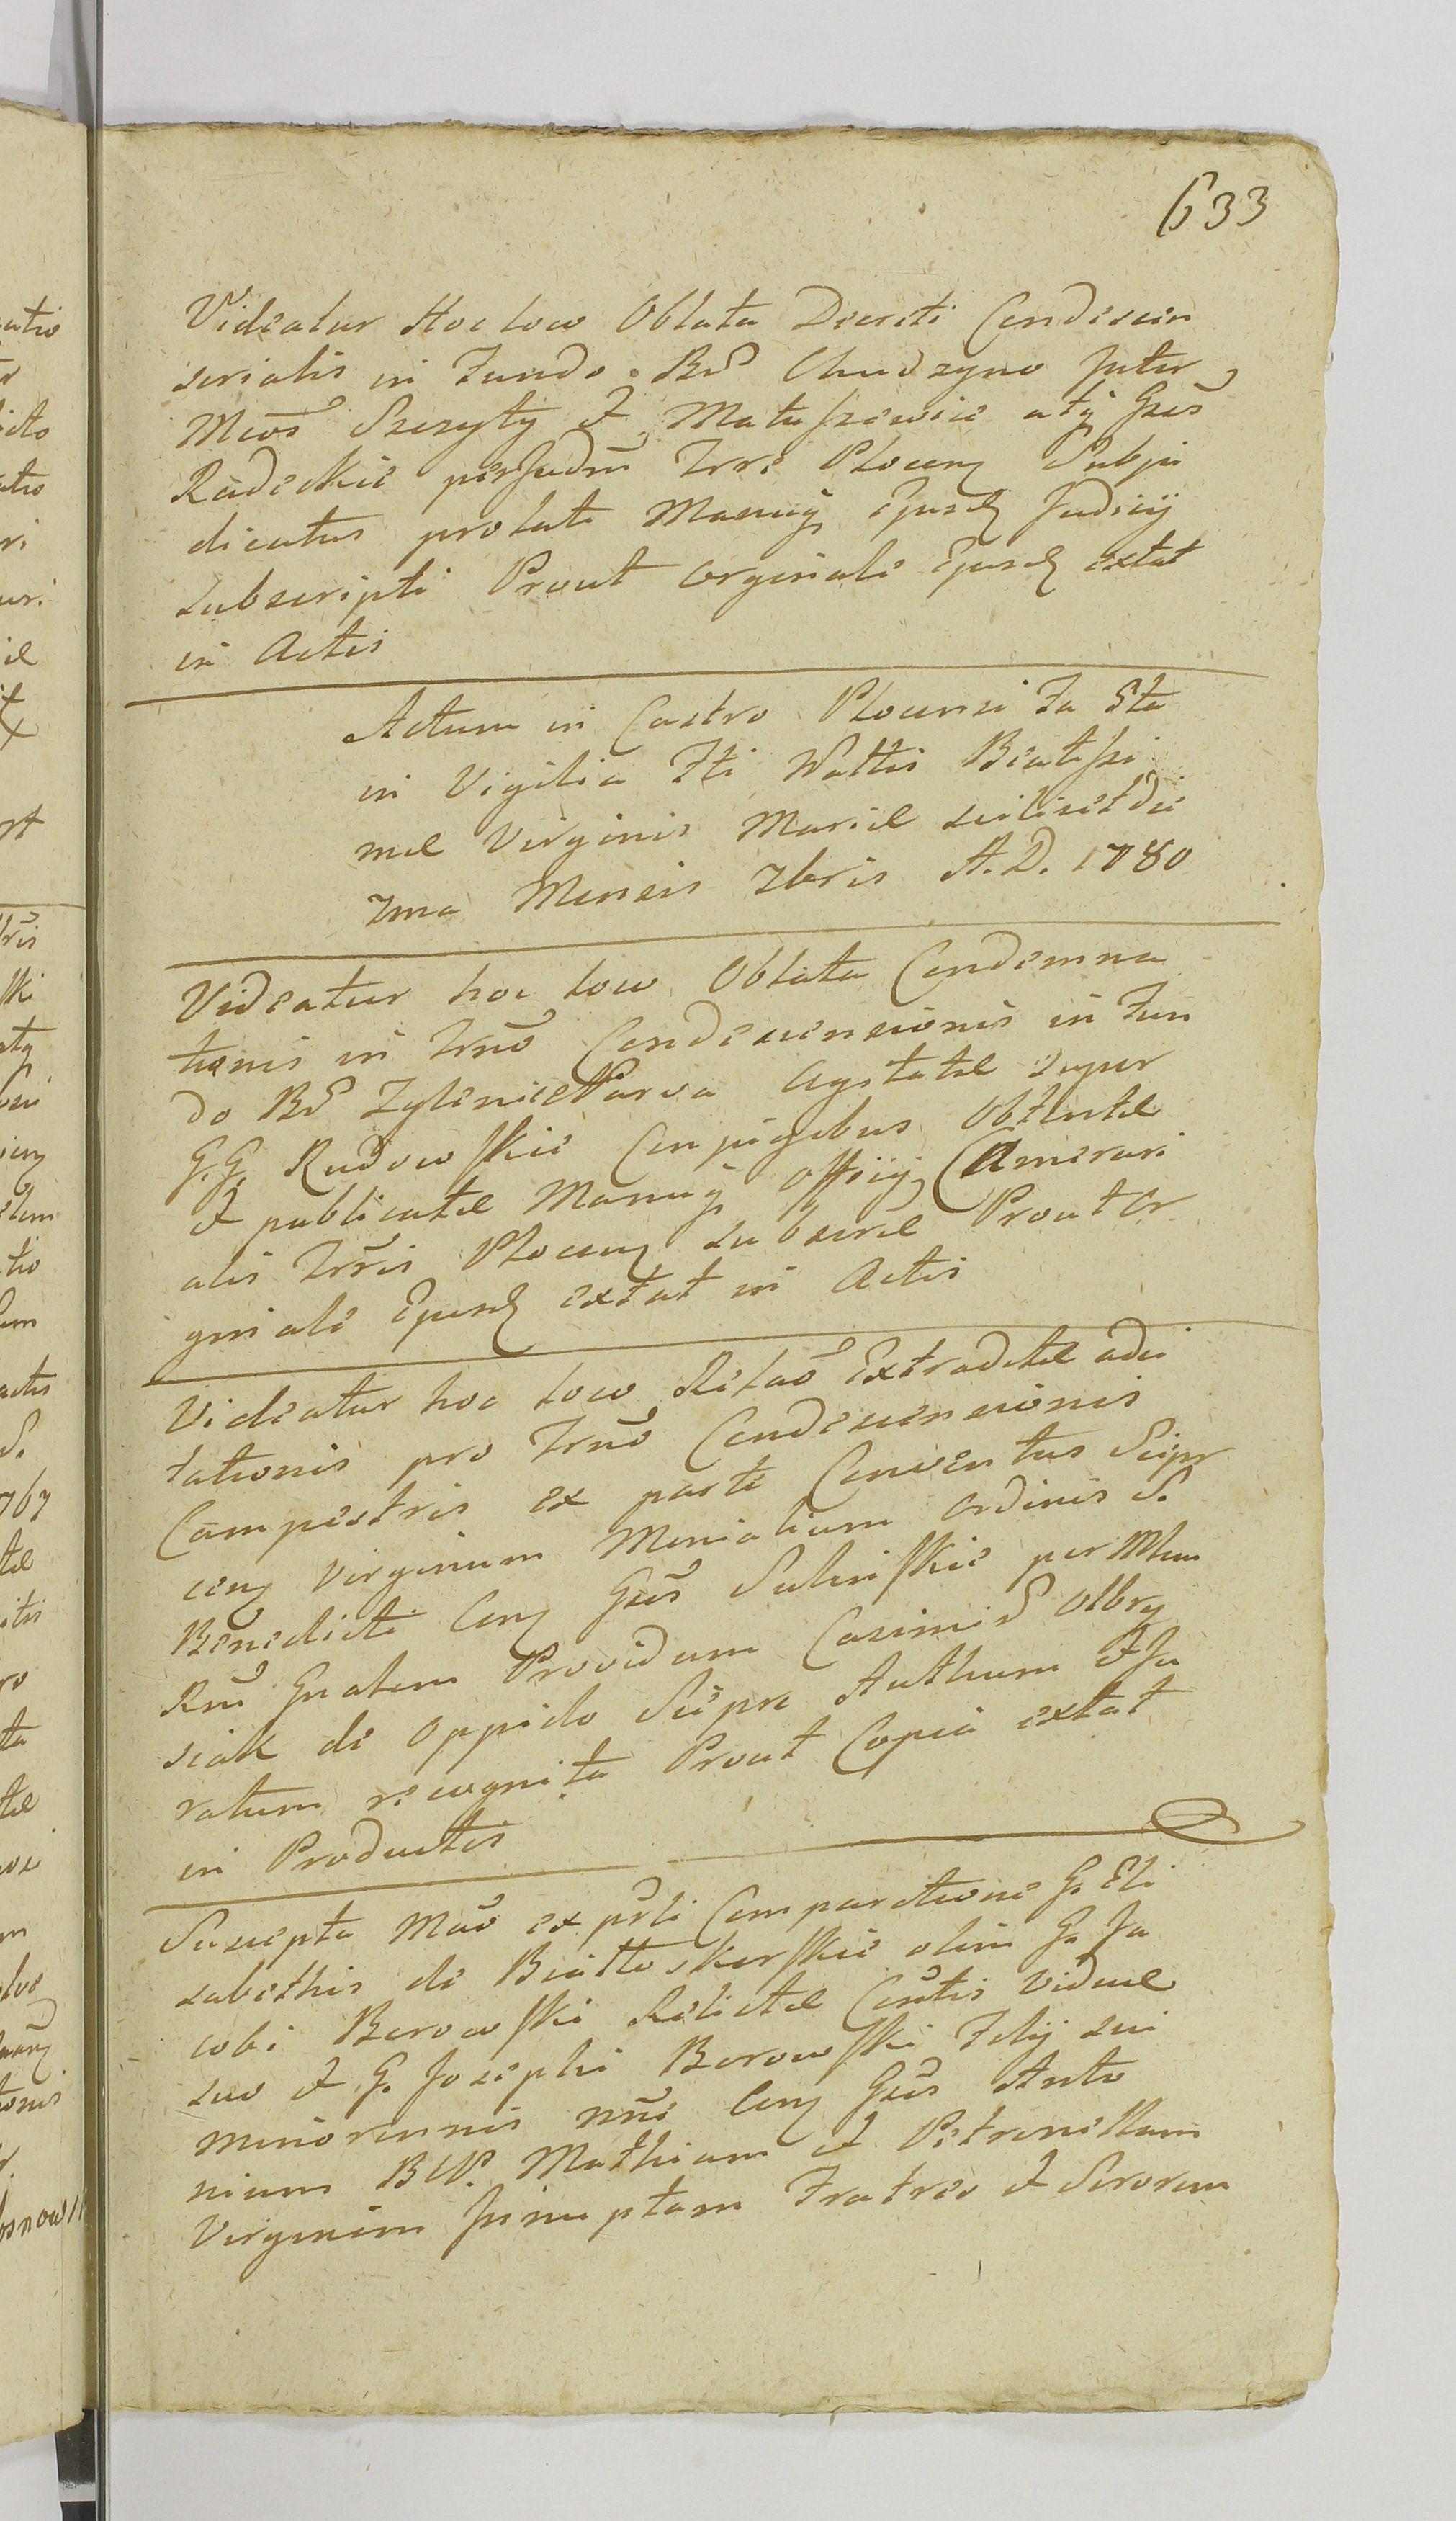 633
Videatur Hoc loco Oblata Decreti Condescen
serialis in Fundo Br̃ Chudzyno Inter
Mcos Szczyty & Matuszewic atq̃ Gr̃s
Radeckie per Judm̃ Trre Plocen̨ Subju
dicatus prolati Manuq̨ Ejusd̨ Judicij
subscripti Prout orginale Ejusd̨ extat
in Actis
Actum in Castro Plocensi Fa 5ta
in Vigilia Fti Nattis Beatissi
mae Virginis Mariae scilicet die
7ma Mensis 7bris A. D. 1780
Videatur hoc loco Oblata Condemna
tionis in Trño Condescensionis in Fun
do Br̃ Zglenice Parva Agitatae super
G. G. Rudowskie Conjugibus Obtentae
& publicatae Manuq̨ Officij Camerari
alis Trr̃is Plocen̨ subscrae Prout Or
ginale Ejusd̨ extat in Actis
Videatur hoc loco Relaõ Extraditae adci
tationis pro Trño Condescensionis
Campestris ex parte Conventus Sierp
cen̨ Virginum Monialium Ordinis S.
Benedicti Con̨ Gr̃s Sulinskie per Mlem
Rm̃ Gnalem Providum Casimir̃ Olbry
siak de Oppido Sierpc Authum & Ju
ratum recognita Prout Copia extat
in Productis
Suscepta Maõ ex pr̃li Comparitione G. Eli
sabethis de Biattoskorskie olim G. Ja
cobi Borowski Relictae Cons̃tis Viduae
suo & G. Josephi Borowski Filij sui
minorennis nñe Con̨ Gr̃s Anto
nium B W. Mathiam & Petronellam
Virginem Innuptam Fratres & Sororem